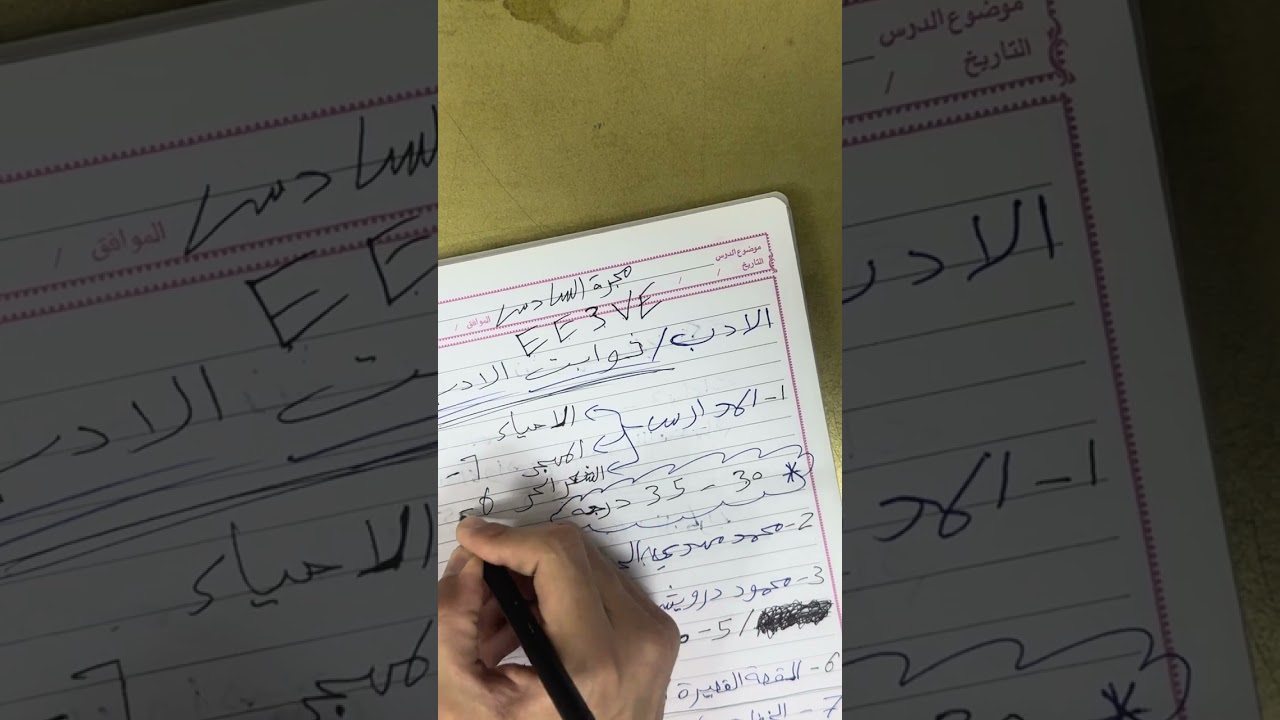 موضوع الدرس
التاريخ / / الموافق /
مجرة السادس
EE3VE
الادب / ثوابت الادب
1- المدارس
الاحياء
المهجر
الشعر الحر
* 30 - 35 درجة
2- محمد مهدي
3- محمود درويش
5-
6- القصة القصيرة
7-